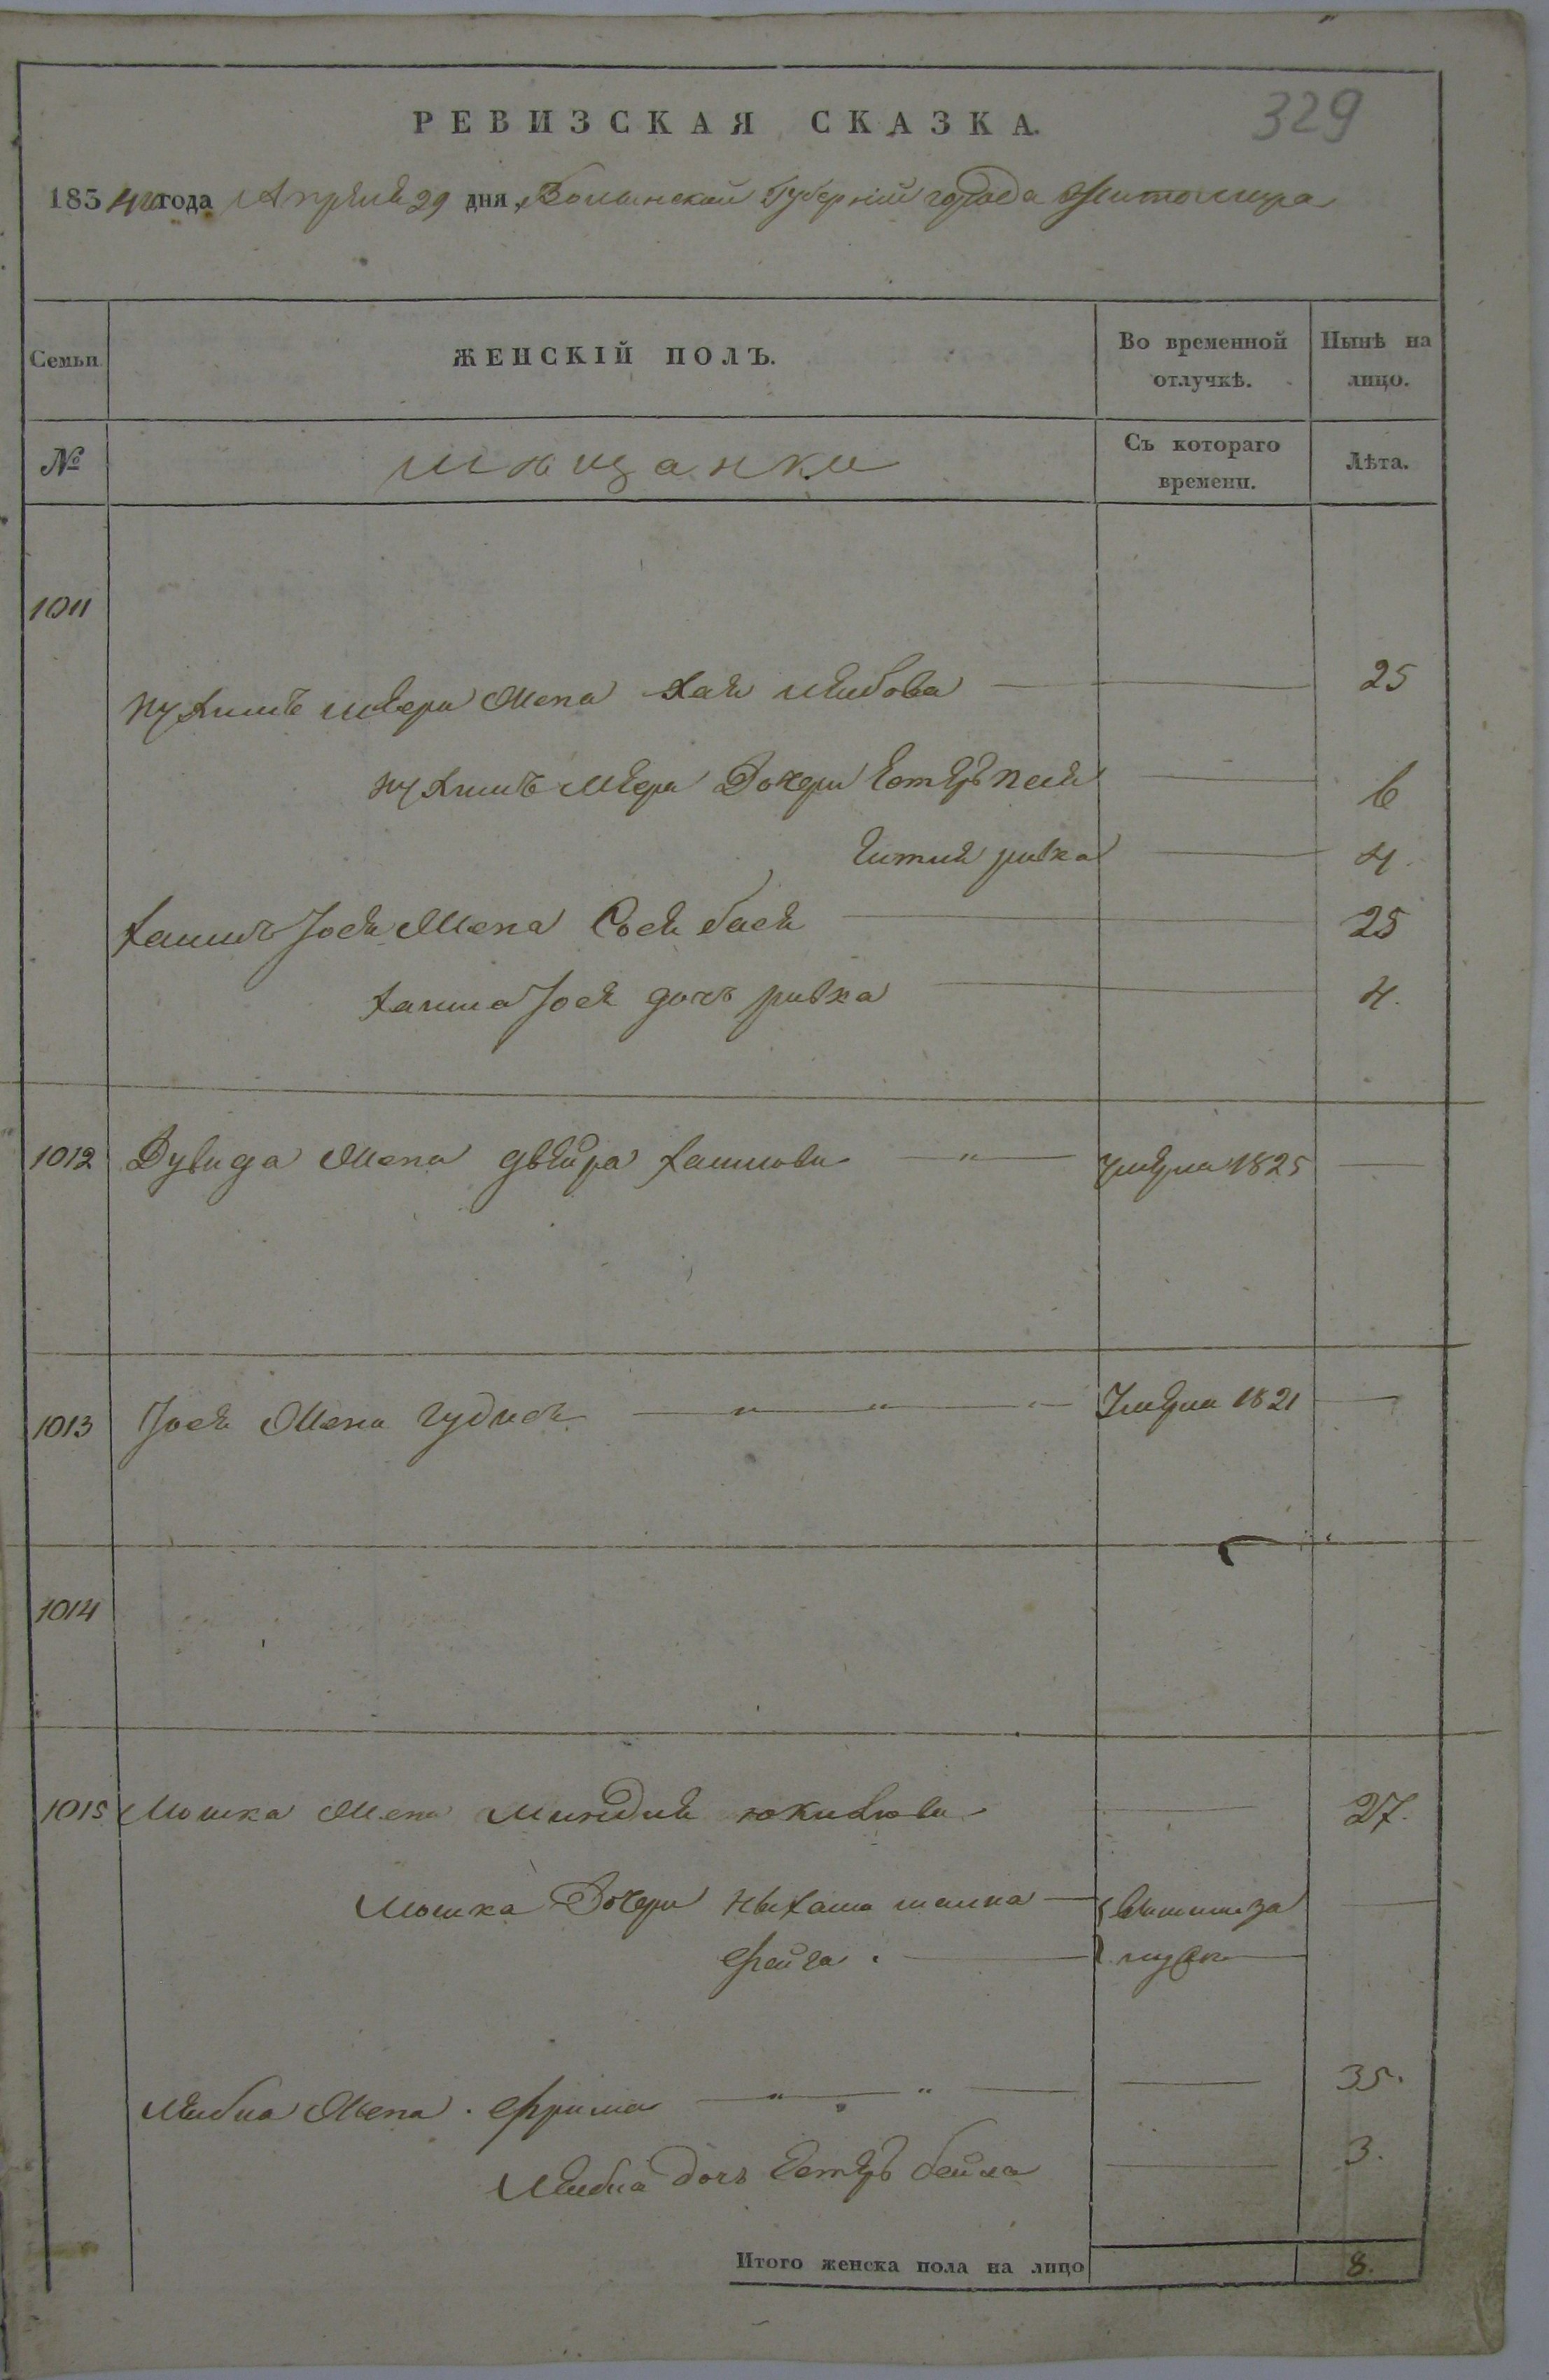 329
РЕВИЗСКАЯ СКАЗКА.
1854 года Апреля 29 дня, Волынской Губерний города Житомира
Семьи
ЖЕНСКІЙ ПОЛЪ.
Во временной отлучкѣ.
Нынѣ на лицо.
№
мѣщанки
Съ котораго времени.
Лѣта.
1011
жена Хая лейбова 25
Дочери Естеръ песя 6
ривка 4.
Хаимъ Йося жена Сося бася 25
Хаима Йося дочь ривка 4.
1012 Дувида жена двейра хаимова — " — умерла 1825 —
1013 Йося жена гудися — " — " — " — Умерла 1821 —
1014
1015 Мошка жена миндля 27.
Мошка Дочери ныхама
фейга.
вышли за мужъ
лейбиа жена. фрима — " — " — 35.
лейбиа дочь Естеръ бейла 3.
Итого женска пола на лицо 8.